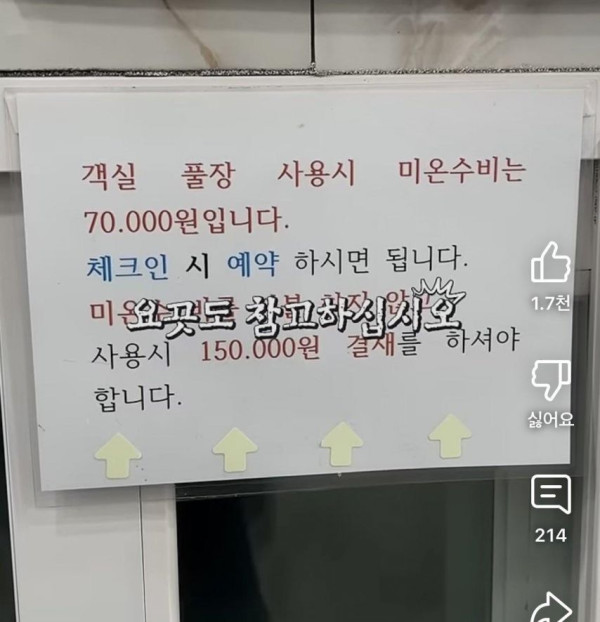 객실 풀장 사용시 미온수비는
70.000원입니다.
체크인 시 예약 하시면 됩니다.
미온
요끗도 참고하십시오
사용시 150.000원 결재를 하셔야
합니다.
1.7천
싫어요
214